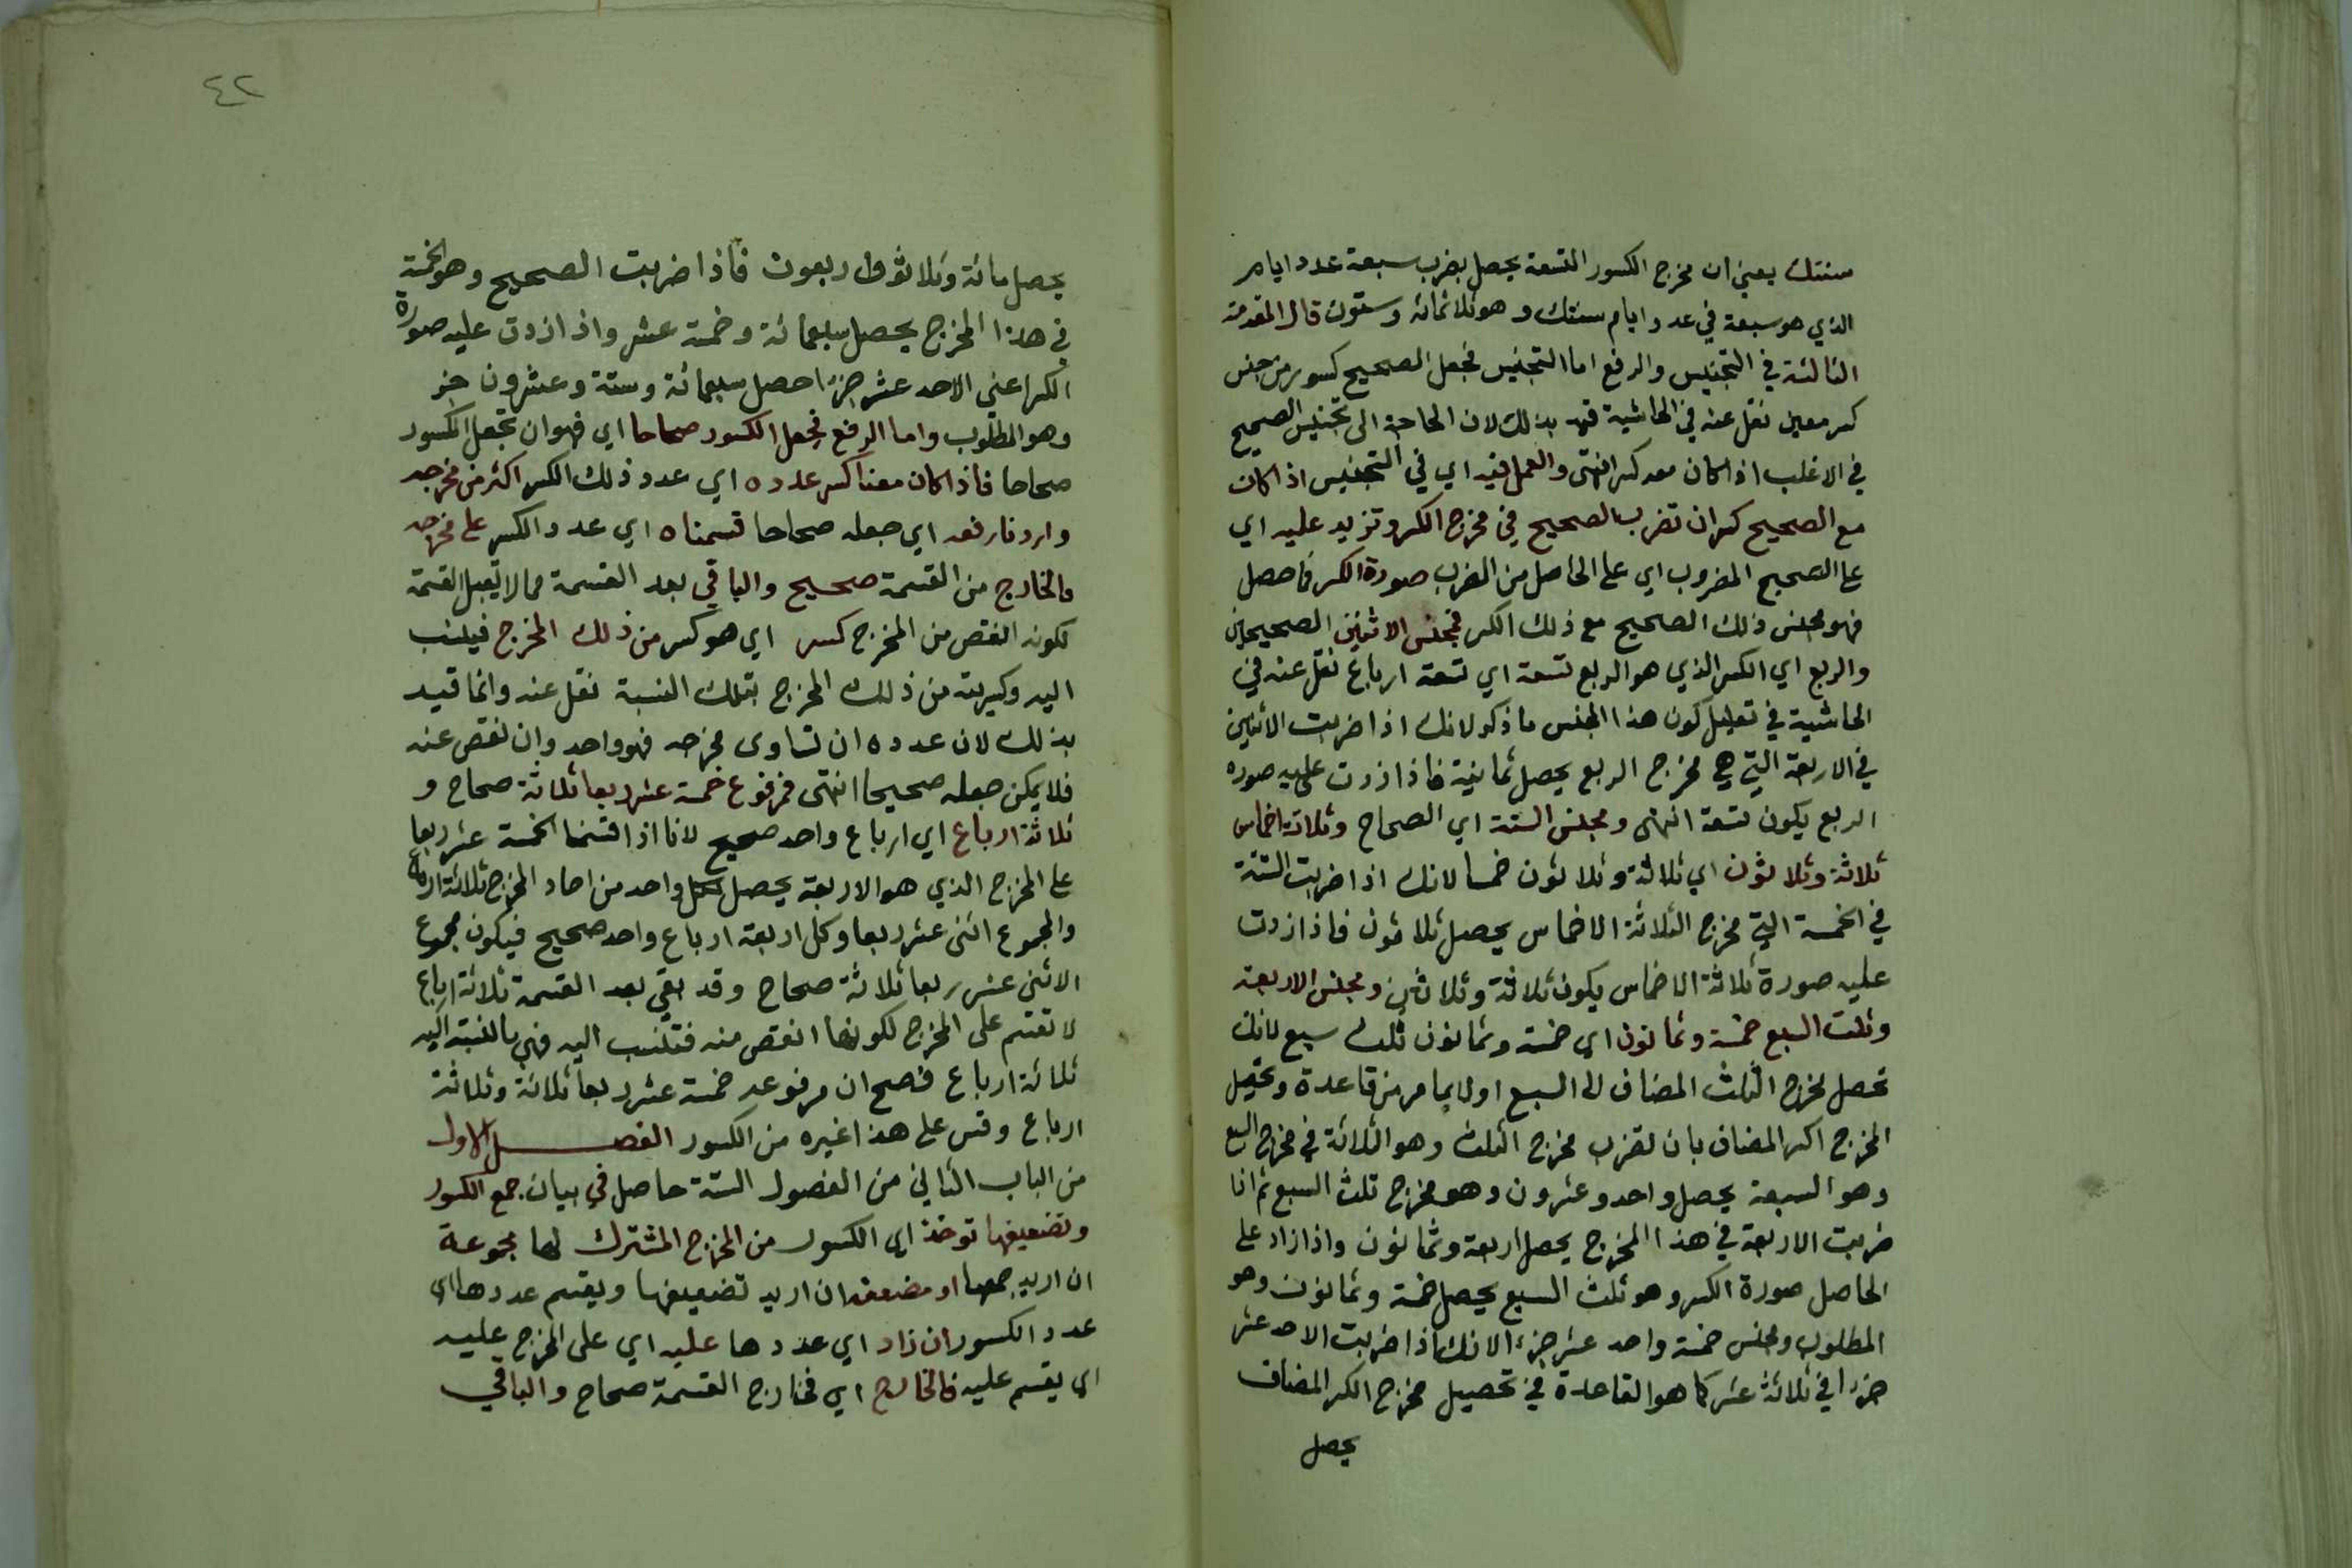 سنتك يعني ان مخرج الكسور التسعة يحصل بضرب سبعة عدد ايام
الذي هو سبعة في عدد ايام سنتك وهو ثلاثمائة وستون قال المقدمة
الثالثة في التجنيس والرفع اما التجنيس فجعل الصحيح كسورا من جنس
كسر معين نقل عنه في الحاشية قيد بذلك لان الحاجة الى تجنيس الصحيح
في الاغلب اذا كان معه كسر انتهى والعمل فيه اي في التجنيس اذا كان
مع الصحيح كسر ان تضرب الصحيح في مخرج الكسر وتزيد عليه اي
على الصحيح المضروب اي على الحاصل من الضرب صورة الكسر فما حصل
فهو مجنس ذلك الصحيح مع ذلك الكسر فمجنس الاثنين الصحيحين
والربع اي الكسر الذي هو الربع تسعة اي تسعة ارباع نقل عنه في
الحاشية في تعليل كون هذا المجنس ما ذكر لانك اذا ضربت الاثنين
في الاربعة التي هي مخرج الربع يحصل ثمانية فاذا زدت عليه صورة
الربع يكون تسعة انتهى ومجنس الستة اي الصحاح وثلاثة اخماس
ثلاثة وثلاثون اي ثلاثة وثلاثون خمسا لانك اذا ضربت الستة
في الخمسة التي مخرج الثلاثة الاخماس يحصل ثلاثون فاذا زدت
عليه صورة ثلاثة الاخماس يكون ثلاثة وثلاثين ومجنس الاربعة
وثلث السبع خمسة وثمانون اي خمسة وثمانون ثلث سبع لانك
تحصل مخرج الثلث المضاف الى السبع اولا بما مر من قاعدة وتحصيل
المخرج الكسر المضاف بان تضرب مخرج الثلث وهو الثلاثة في مخرج السبع
وهو السبعة يحصل واحد وعشرون وهو مخرج ثلث السبع ثم انا
ضربت الاربعة في هذا المخرج يحصل اربعة وثمانون واذا زاد على
الحاصل صورة الكسر وهو ثلث السبع يحصل خمسة وثمانون وهو
المطلوب ومجنس خمسة واحد عشر جزءا لانك اذا ضربت الاحد عشر
جزءا في ثلاثة عشر كما هو القاعدة في تحصيل مخرج الكسر المضاف
يحصل
٤٢
يحصل مائة وثلاثة واربعون فاذا ضربت الصحيح وهو الخمسة
في هذا المخرج يحصل سبعمائة وخمسة عشر واذا زدت عليه صورة
الكسر اعني الاحد عشر جزءا حصل سبعمائة وستة وعشرون جزء
وهو المطلوب واما الرفع فجعل الكسور صحاحا اي فهو ان تجعل الكسور
صحاحا فاذا كان معنا كسر عدده اي عدد ذلك الكسر اكثر من مخرجه
واردنا رفعه اي جعله صحاحا قسمناه اي عدد الكسر على مخرجه
فالخارج من القسمة صحيح والباقي بعد القسمة مما لا يقبل القسمة
لكونه انقص من المخرج كسر اي هو كسر من ذلك المخرج فينسب
اليه وكسريته من ذلك المخرج بتلك النسبة نقل عنه وانما قيد
بذلك لان عدده ان تساوى مخرجه فهو واحد وان نقص عنه
فلا يمكن جعله صحيحا انتهى فمرفوع خمسة عشر ربعا ثلاثة صحاح و
ثلاثة ارباع اي ارباع واحد صحيح لانا اذا قسمنا الخمسة عشر ربعا
على المخرج الذي هو الاربعة يحصل لكل واحد من احاد المخرج ثلاثة ارباع
والمجموع اثنى عشر ربعا وكل اربعة ارباع واحد صحيح فيكون مجموع
الاثنى عشر ربعا ثلاثة صحاح وقد بقي بعد القسمة ثلاثة ارباع
لا تقسم على المخرج لكونها انقص منه فتنسب اليه فهي بالنسبة اليه
ثلاثة ارباع فصح ان مرفوع خمسة عشر ربعا ثلاثة وثلاثة
ارباع وقس على هذا غيره من الكسور الفصل الاول
من الباب الثاني من الفصول الستة حاصل في بيان جمع الكسور
وتضعيفها توخذ اي الكسور من المخرج المشترك لها مجموعة
ان اريد جمعها او مضعفة ان اريد تضعيفها ويقسم عددها اي
عدد الكسور ان زاد اي عددها عليه اي على المخرج عليه
اي يقسم عليه فالخارج اي فخارج القسمة صحاح والباقي